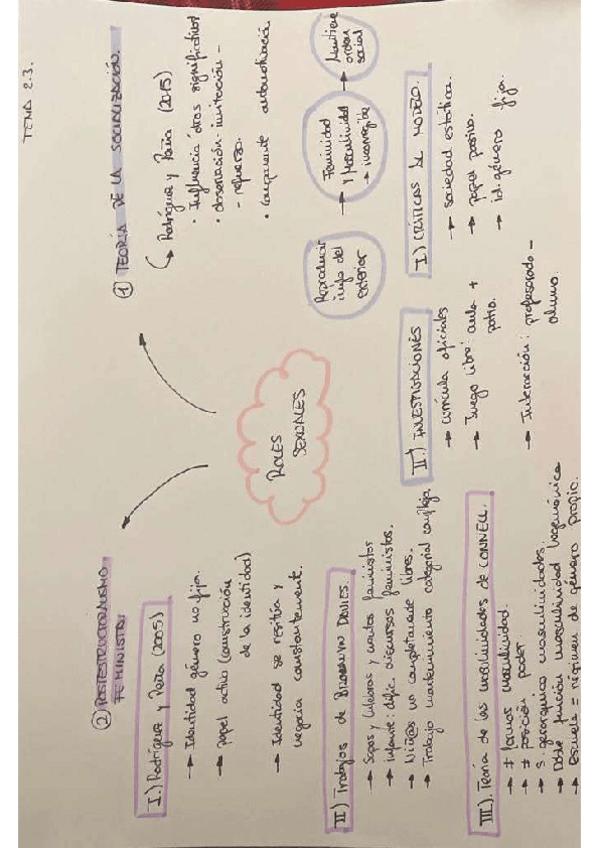 TEMA 2.3.
① TEORÍA DE LA SOCIALIZACIÓN.
Rodríguez y Peña (2015)
· Influencia otros significativos
· observación - imitación -
- refuerzo.
· componente automotivación
Reproducir
info del
exterior
→ Feminidad
y Masculinidad
→ incorregible
→ Mantiene
orden
social
I) CRÍTICAS AL MODELO.
→ sociedad estática.
→ papel pasivo.
→ id. género fija.
II) INVESTIGACIONES
→ Currícula oficiales
→ Juego libre: aula +
patio.
→ Interacción: profesorado -
alumno.
ROLES
SEXUALES
② POSTESTRUCTURALISMO
FEMINISTA
I.) Rodríguez y Peña (2005)
→ Identidad género no fija.
→ papel activo (construcción
de la identidad)
→ Identidad se resitúa y
negocia constantemente.
II) Trabajos de BRONWYN DAVIES.
→ Sapos y culebras y cuentos feministas
→ Infante: dific. discursos feministas.
→ Niñ@s no completamente libres.
→ Trabajo mantenimiento categorial
III). Teoría de las masculinidades de CONNELL.
→ ≠ formas masculinidad.
→ ≠ posición poder.
→ s. jerárquico masculinidades.
→ Doble función masculinidad hegemónica
→ Escuela = régimen de género propio.